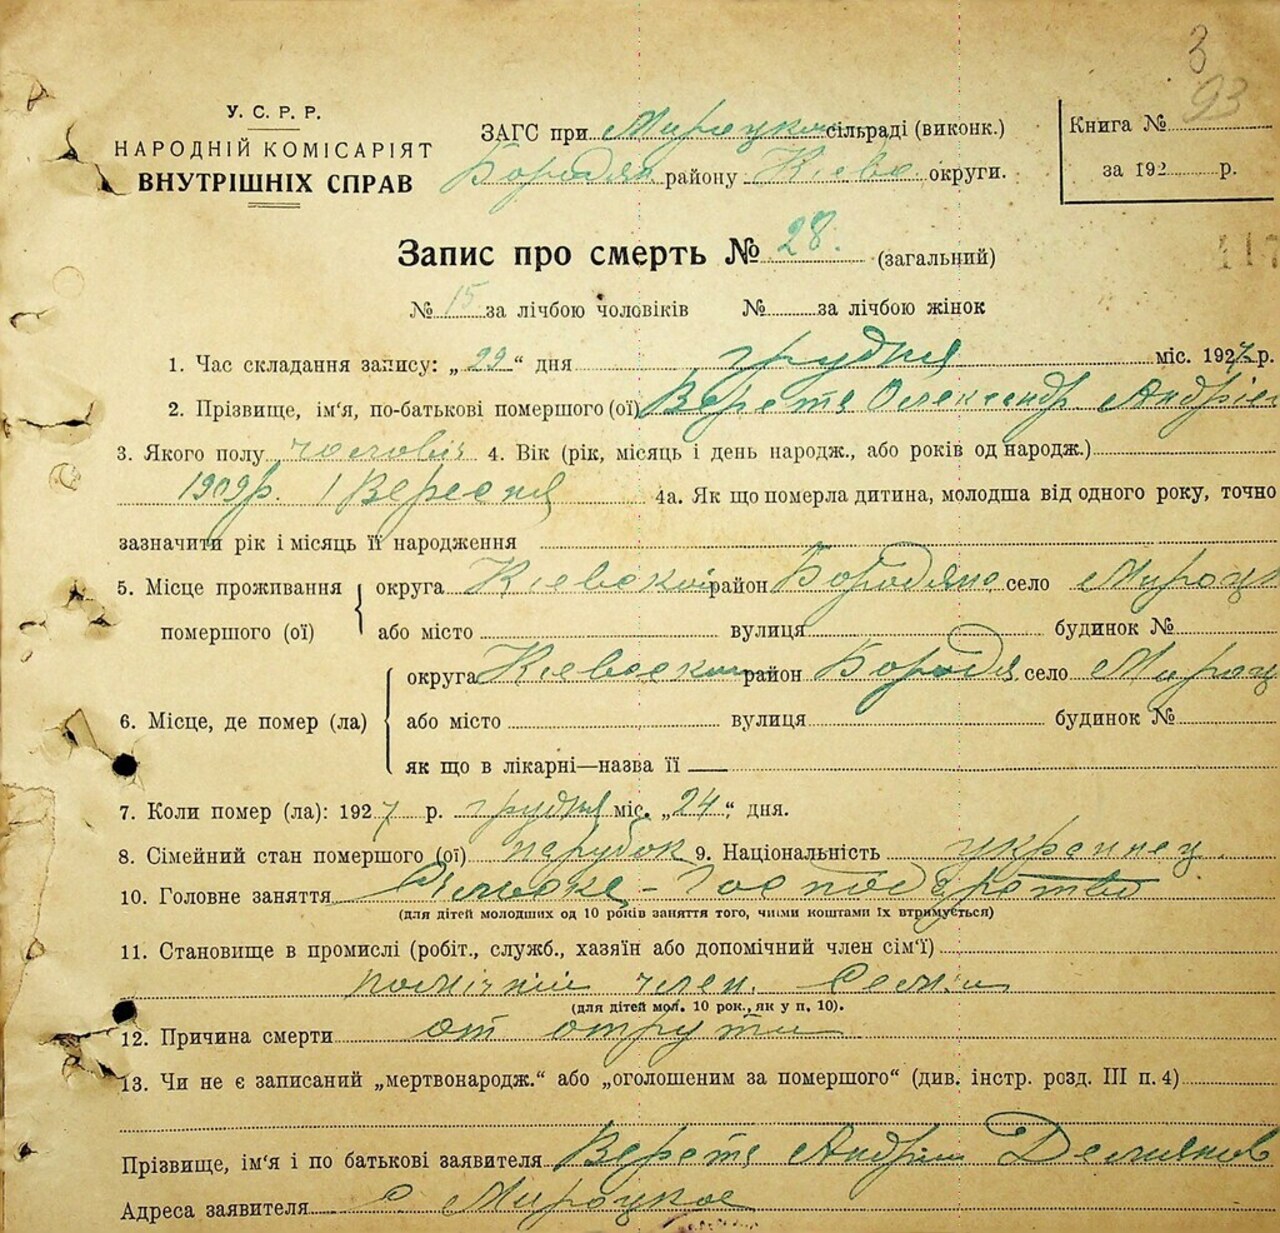 3
93
У. С. Р. Р.
НАРОДНІЙ КОМІСАРІЯТ
ВНУТРІШНІХ СПРАВ
ЗАГС при Мироцкой сільраді (виконк.)
Бородян району Кіевс. округи.
Книга №
за 192 р.
117
Запис про смерть № 28. (загальний)
№ 15 за лічбою чоловіків № за лічбою жінок
1. Час складання запису: „29“ дня грудня міс. 1927 р.
2. Прізвище, ім‘я, по-батькові помершого (ої) Олександр Андріев
3. Якого полу чоловіч 4. Вік (рік, місяць і день народж., або років од народж.)
1909р. 1 Вересня 4а. Як що померла дитина, молодша від одного року, точно
зазначити рік і місяць її народження
5. Місце проживання помершого (ої) округа Кіевской район Бородянс. село Мироцк
або місто вулиця будинок №
6. Місце, де помер (ла) округа Кіевской район Бородя село Мироц
або місто вулиця будинок №
як що в лікарні—назва її
7. Коли помер (ла): 1927 р. грудня міс. „24“ дня.
8. Сімейний стан помершого (ої) парубок 9. Національність украинец.
10. Головне заняття Сільске-Господарство
(для дітей молодших од 10 років заняття того, чиїми коштами їх втримується)
11. Становище в промислі (робіт., служб., хазяїн або допомічний член сім‘ї)
помічний член. Семьи
(для дітей мол. 10 рок., як у п. 10).
12. Причина смерти от отрути
13. Чи не є записаний „мертвонародж.“ або „оголошеним за помершого“ (див. інстр. розд. III п. 4)
Прізвище, ім‘я і по батькові заявителя Андрій Демянов
Адреса заявителя с. Мироцкое